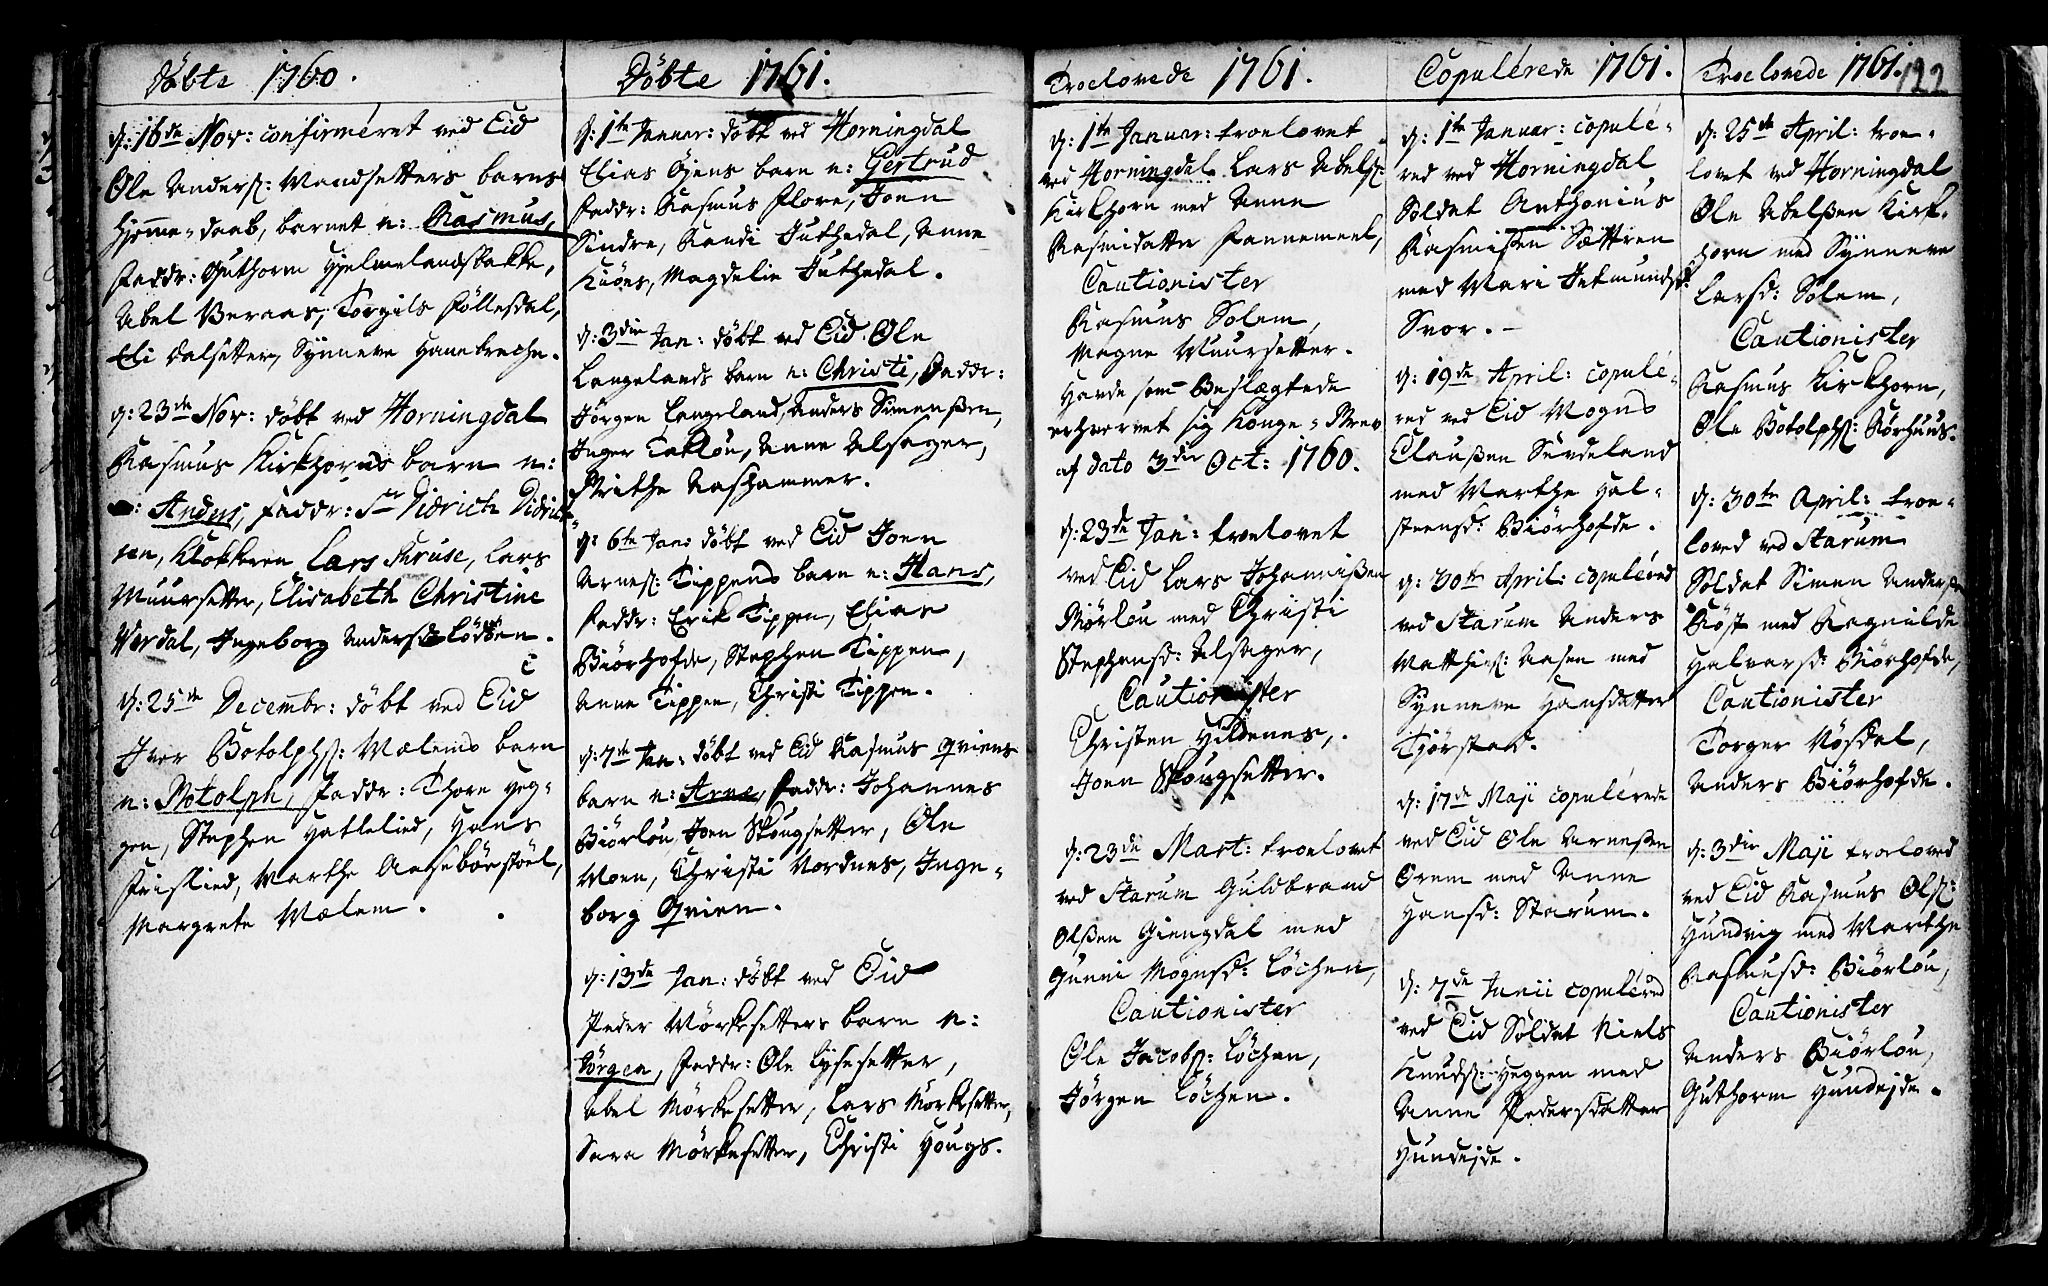 Döbte 1760.
d: 16de Nov: confirméret ved Eid
Ole Anders: Mandsetters barns
hjemme-daab, barnet n: Rasmus,
Faddr: Guthorm Hjelmelandsbakke,
Abel Beraas, Torgils Föllesdal,
Eli Dalsetter, Synneve Hanebrechn.
d: 23de Nov: döbt ved Horningdal
Rasmus Kirkhorns barn n:
Anders, Faddr: Sr Didrich Didrich-
sen, Klokkeren Lars Kruse, Lars
Muursetter, Elisabeth Christine
Werdal, Ingeborg Andersd: Lödöen.
d: 25de Decembr: döbt ved Eid
Iver Botolphs: Mælems barn
n: Botolph, Faddr: Thore Heg-
gen, Stephen Hattelied, Hans
Frislied, Marthe Aaseböestöel,
Margrete Mælem.
Döbte 1761.
d: 1te Januar: döbt ved Horningdal
Elias Öiens barn n: Gertrud
Faddr: Rasmus Flore, Joen
Sindre, Randi Juthedal, Anne
Kiöes, Magdelie Juthedal.
d: 3die Jan: döbt ved Eid Ole
Langelands barn n: Christi, Faddr:
Jörgen Langeland, Anders Simenßen,
Inger Takløu, Anne Alsager,
Brithe Aashammer.
d: 6te Jan: döbt ved Eid Joen
Arnes: Tippens barn n: Hans,
Faddr: Erik Tippen, Elias
Biörhofde, Stephen Tippen,
Anne Tippen, Christi Tippen.
d: 7de Jan: döbt ved Eid Rasmus Qviens
barn n: Arne, Faddr: Johannes
Biörlöu, Joen Skougsetter, Ole
Moen, Christi Nordnes, Inge-
borg Qvien.
d: 13de Jan: döbt ved Eid
Peder Mörkesetters barn n:
Jörgen, Faddr: Ole Lysesetter,
Abel Mörkesetter, Lars Mörkesetter,
Sara Mörkesetter, Christi Hougs.
Troelovede 1761.
d: 1te Januar: troelovet
ved Horningdal Lars Abels:
Kirkhorn med Anne
Rasmisdatter Hannemeel,
Cautionister
Rasmus Solem,
Magne Muursetter.
Havde som Beslægtede
erhvervet sig Konge-Brev
af dato 3die Oct: 1760.
d: 23de Jan: troelovet
ved Eid Lars Johannißen
Biörløu med Christi
Stephensd: Alsager,
Cautionister
Christen Hildenes,
Joen Skougsetter.
d: 23de Mart: troelovet
ved Starum Guldbrand
Olßen Giengdal med
Gunni Mognsd: Löchen,
Cautionister
Ole Jacobs: Löchen,
Jörgen Löchen.
Copulérede 1761.
d: 1te Januar: copulé-
red ved Horningdal
Soldat Anthonius
Rasmißen Sættren
med Mari Jetmundsd:
Svor.
d: 19de April: copulé-
red ved Eid Mogns
Claußen Sevdeland
med Marthe Hal-
steensd: Biörhofde.
d: 30te April: copuléred
ved Starum Anders
Matthis: Aasen med
Synneve Hansdatter
Tjörstad.
d: 17de Maji copulérede
ved Eid Ole Arneßen
Orem med Anne
Hansd: Starum.
d: 7de Junii copuléred
ved Eid Soldat Niels
Knuds: Heggen med
Anne Pedersdatter
Hundejde.
Troelovede 1761.
122
d: 25de April: troe-
lovet ved Horningdal
Ole Abelßen Kirk-
horn med Synneve
Larsd: Solem,
Cautionister
Rasmus Kirkhorn,
Ole Botolphs: Rörhuus.
d: 30te April: troe-
loved ved Starum
Soldat Simen Anders:
Röst med Ragnilde
Halvarsd: Biörhofde,
Cautionister
Torger Nösdal,
Anders Biörhofde.
d: 3die Maji troeloved
ved Eid Rasmus Ols:
Hundvig med Marthe
Rasmusd: Biörløu,
Cautionister
Anders Biörløu,
Guthorm Hundejde.